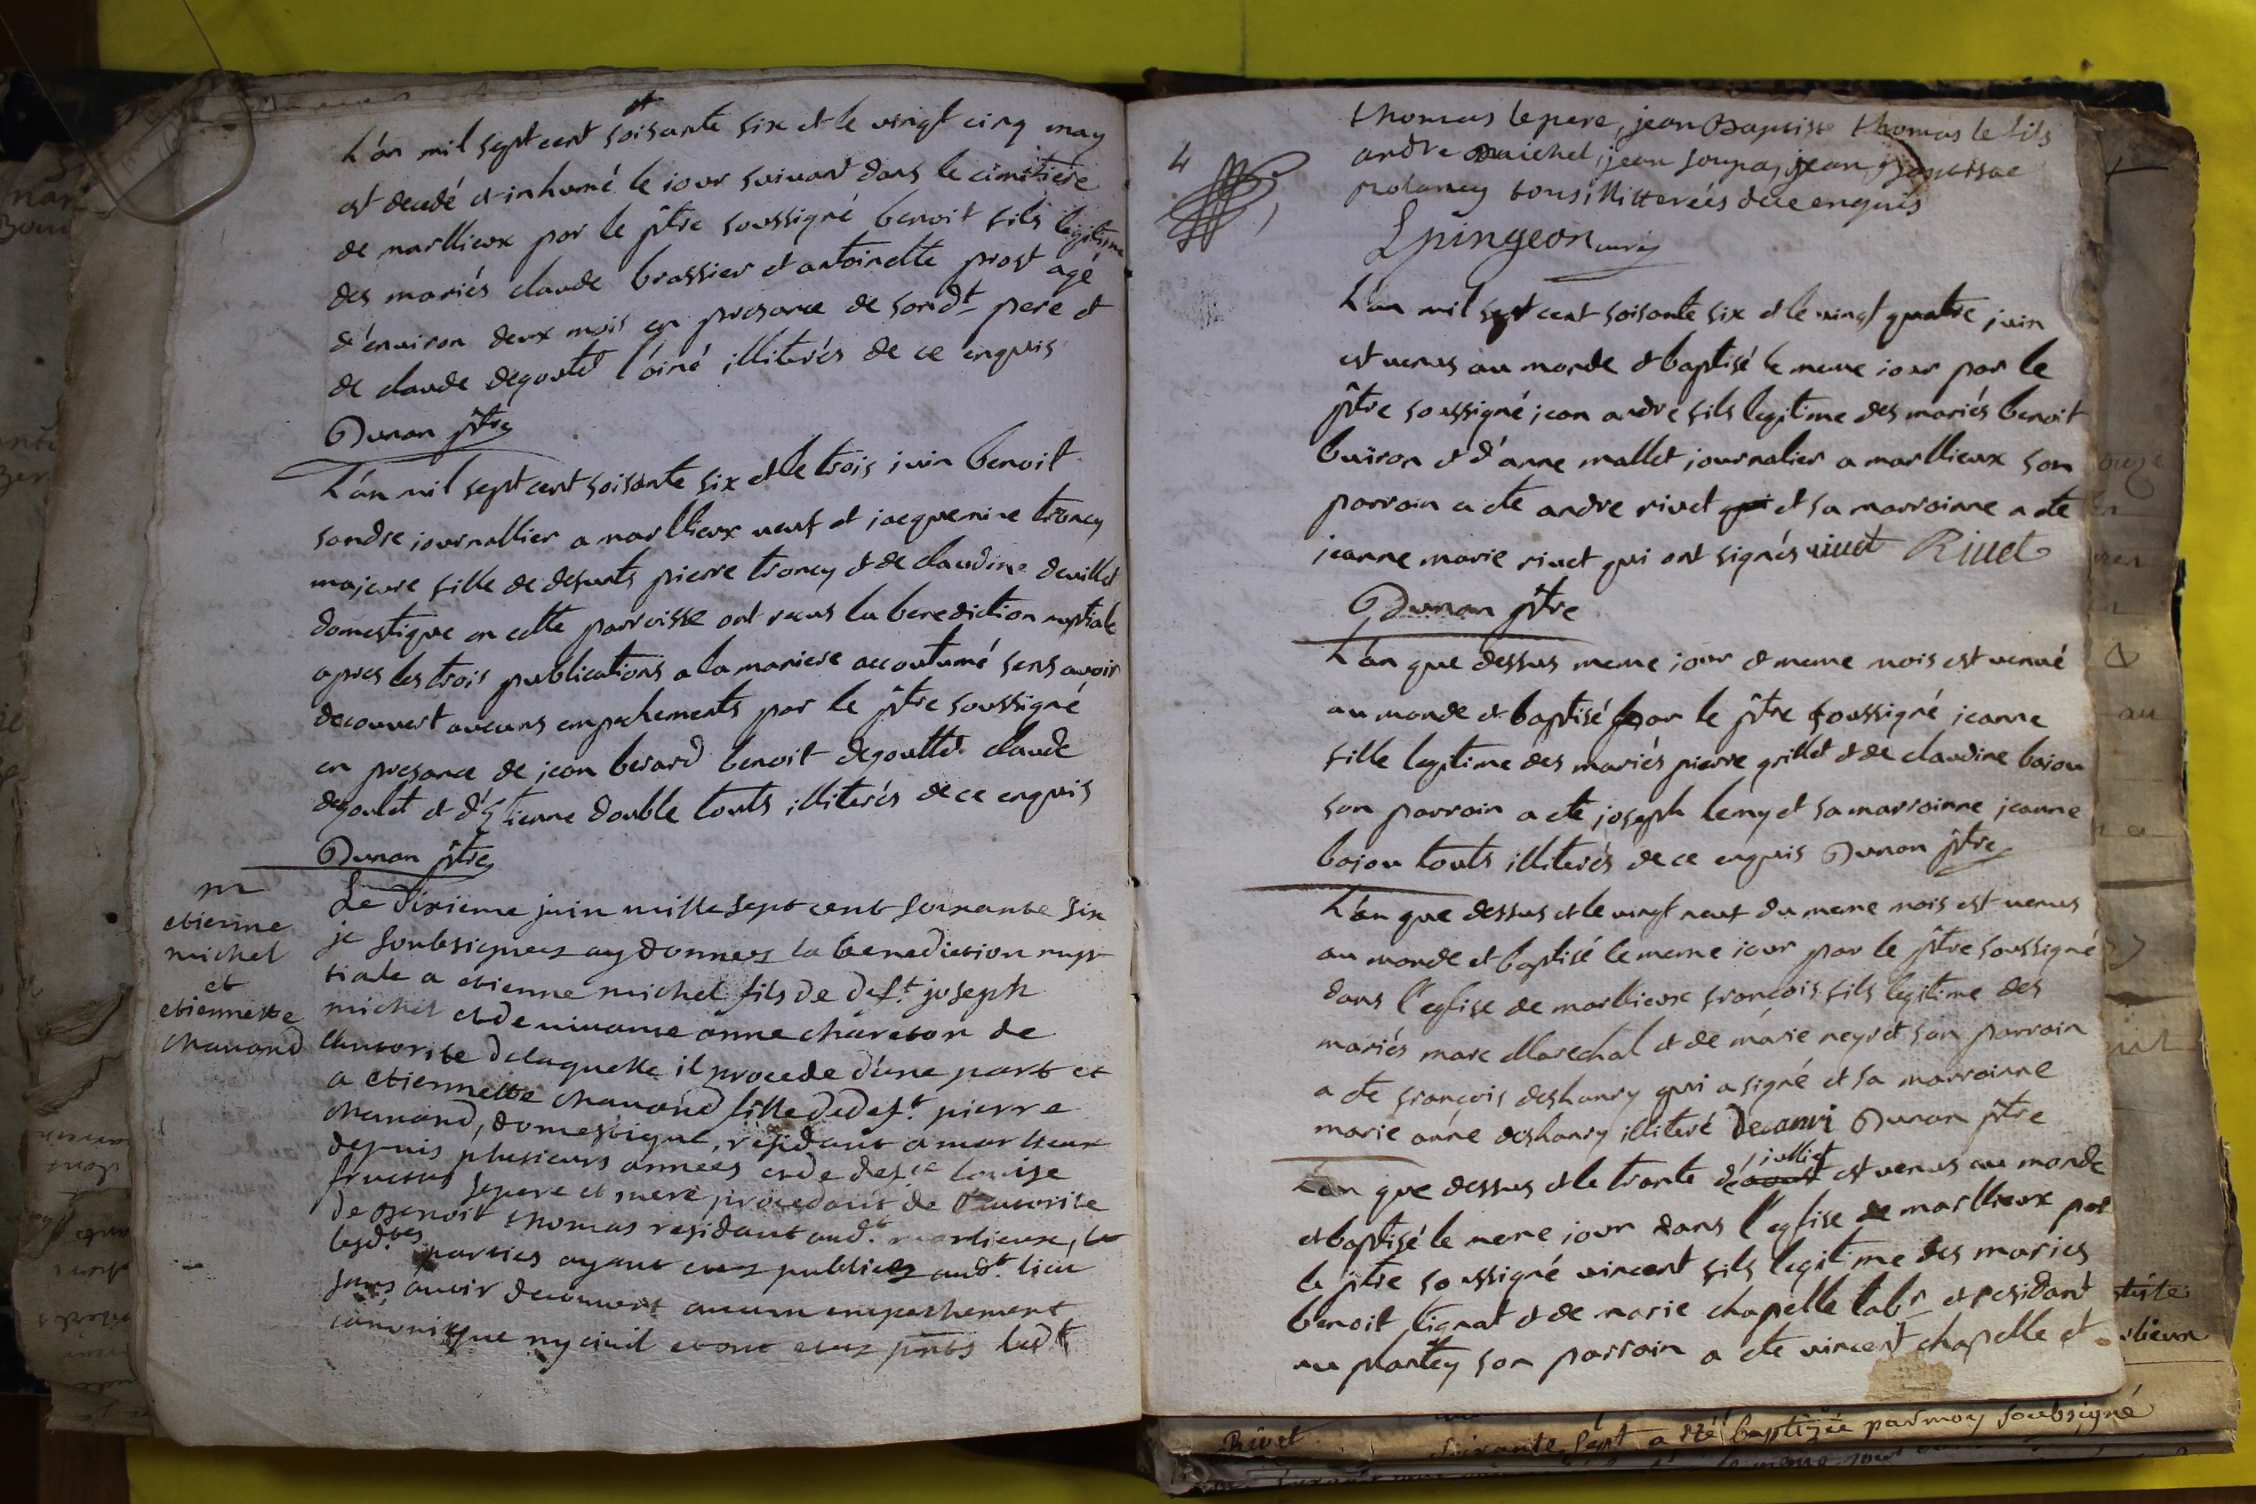 L'an mil sept cent soisante six et le vingt cinq may
est decedé et inhumé le iour suivant dans le cimitiere
de marllieux por le ptre soussigné benoit fils legitime
des mariés claude brassier et antoinette prost agé
d'environ deux mois en presance de sondt pere et
de claude degoutet l'ainé illiterés de ce enquis
Dunan ptre
L'an mil sept cent soisante six et le trois iuin benoit
sandre iournallier a marllieux veuf et iacquemine troncy
majeure fille de defunts pierre troncy et de claudine devillet
domestique en cette parroisse ont recus la benediction nuptiale
apres les trois publications a la maniere accoutumé sens avoir
decouvert aucuns empechements par le ptre soussigné
en presance de jean berard benoit degouttet claude
degoutet et d'Etienne double touts illiterés de ce enquis
Dunan ptre
m
etienne
michel
et
etiennette
chavand
Le dixieme juin mille sept cent soixante six
je soubsignez ay donnez la benediction nup
tiale a etienne michel fils de deft joseph
michel et de vivante anne chareton de
l'autorite delaquelle il procede d'une part et
a etiennette chavand fille de deft pierre
chavand, domestique, residant a marlieux
depuis plusieurs années et de defte louise
ses pere et mere procedant de l'autorite
de benoit thomas residant aud. marlieux, les
lesdtes parties ayant etez publiez audt lieu
sans avoir decouvert aucun empechement
canonique ny civil et ont etez pnts ledt
4
thomas le pere, jean Baptiste thomas le fils
andre michel, jean soupa, jean
tous illitterées de ce enquis
Lpingeon curé
L'an mil sept cent soisante six et le vingt quatre iuin
est venus au monde et baptisé le meme iour par le
ptre soussigné jean andre fils legitime des mariés benoit
buiron et d'anne mallet journalier a marllieux son
parrain a ete andre rivet et sa marroinne a ete
jeanne marie rivet qui ont signés rivet Rivet
Dunan ptre
L'an que dessus meme iour et meme mois est venué
au monde et baptisé par le ptre soussigné jeanne
fille legitime des mariés pierre grillet et de claudine bojou
son parrain a ete joseph leny et sa marroinne jeanne
bojou touts illiterés de ce enquis Dunan ptre
L'an que dessus et le vingt neuf du meme mois est venus
au monde et baptisé le meme iour par le ptre soussigné
dans l'eglise de marllieux françois fils legitime des
mariés marc Marechal et de marie neyret son parrain
a ete françois deshanry qui a signé et sa marroinne
marie anne deshanry illiteré Decanri Dunan ptre
L'an que dessus et le trante juillet est venus au monde
et baptisé le meme iour dans l'eglise de marllieux par
le ptre soussigné vincent fils legitime des mariés
benoit tignat et de marie chapelle labr et residant
au plantey son parrain a ete vincent chapelle et
Rivet
soixante sept a été baptizée par moy soubsigné